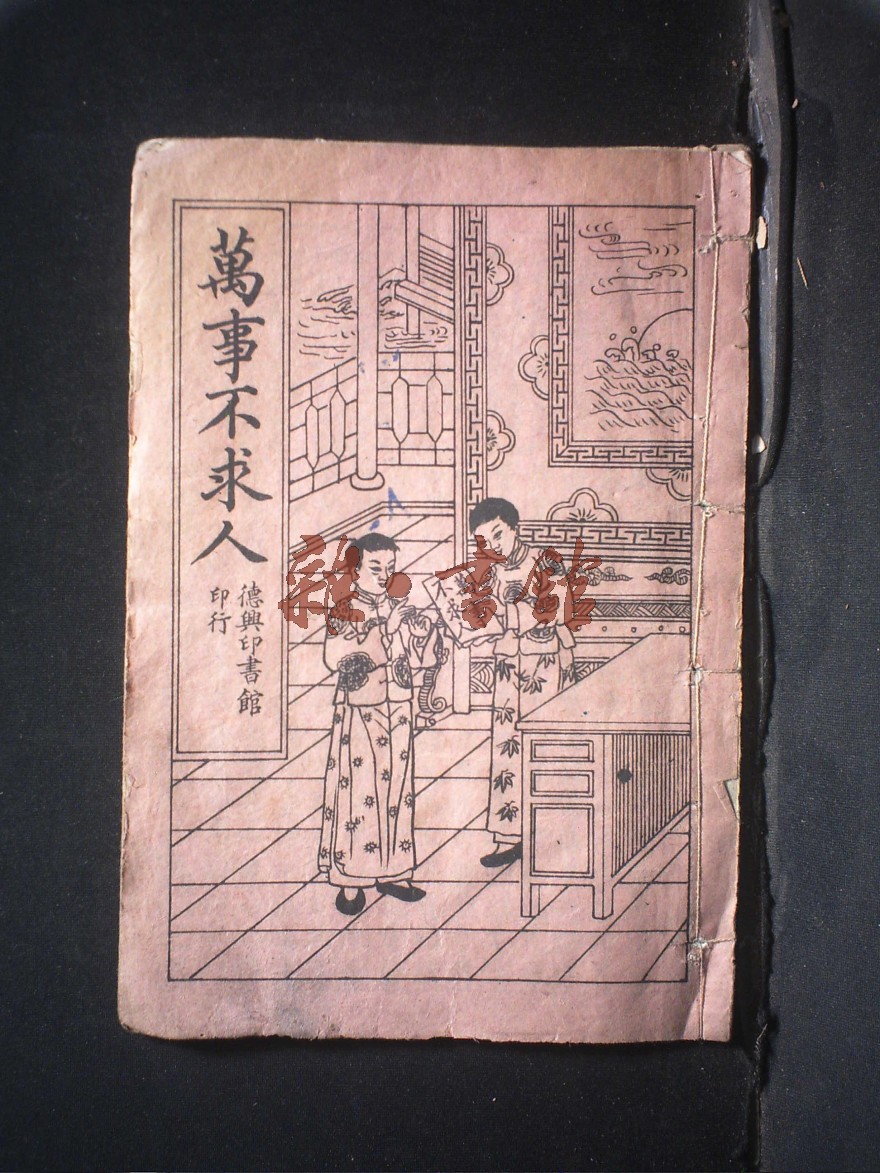 萬事不求人
德興印書館
印行
雜·書館